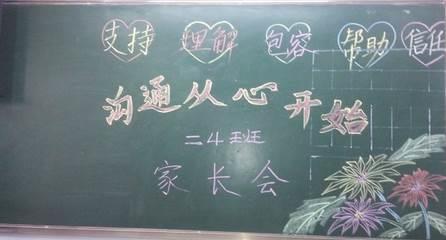 支持 理解 包容 帮助 信任
沟通从心开始
二4班
家长会